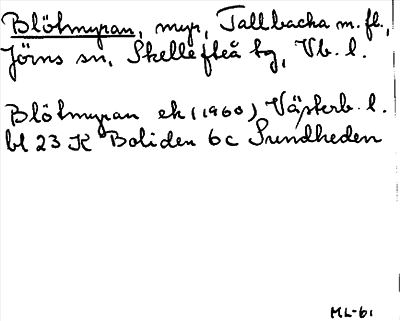 Blötmyran, myr, Tallbacka m. fl.,
Jörns sn, Skellefteå tg, Vb. l.
Blötmyran ek (1960) Västerb. l.
bl 23 K Boliden 6c Sundheden
ML-61